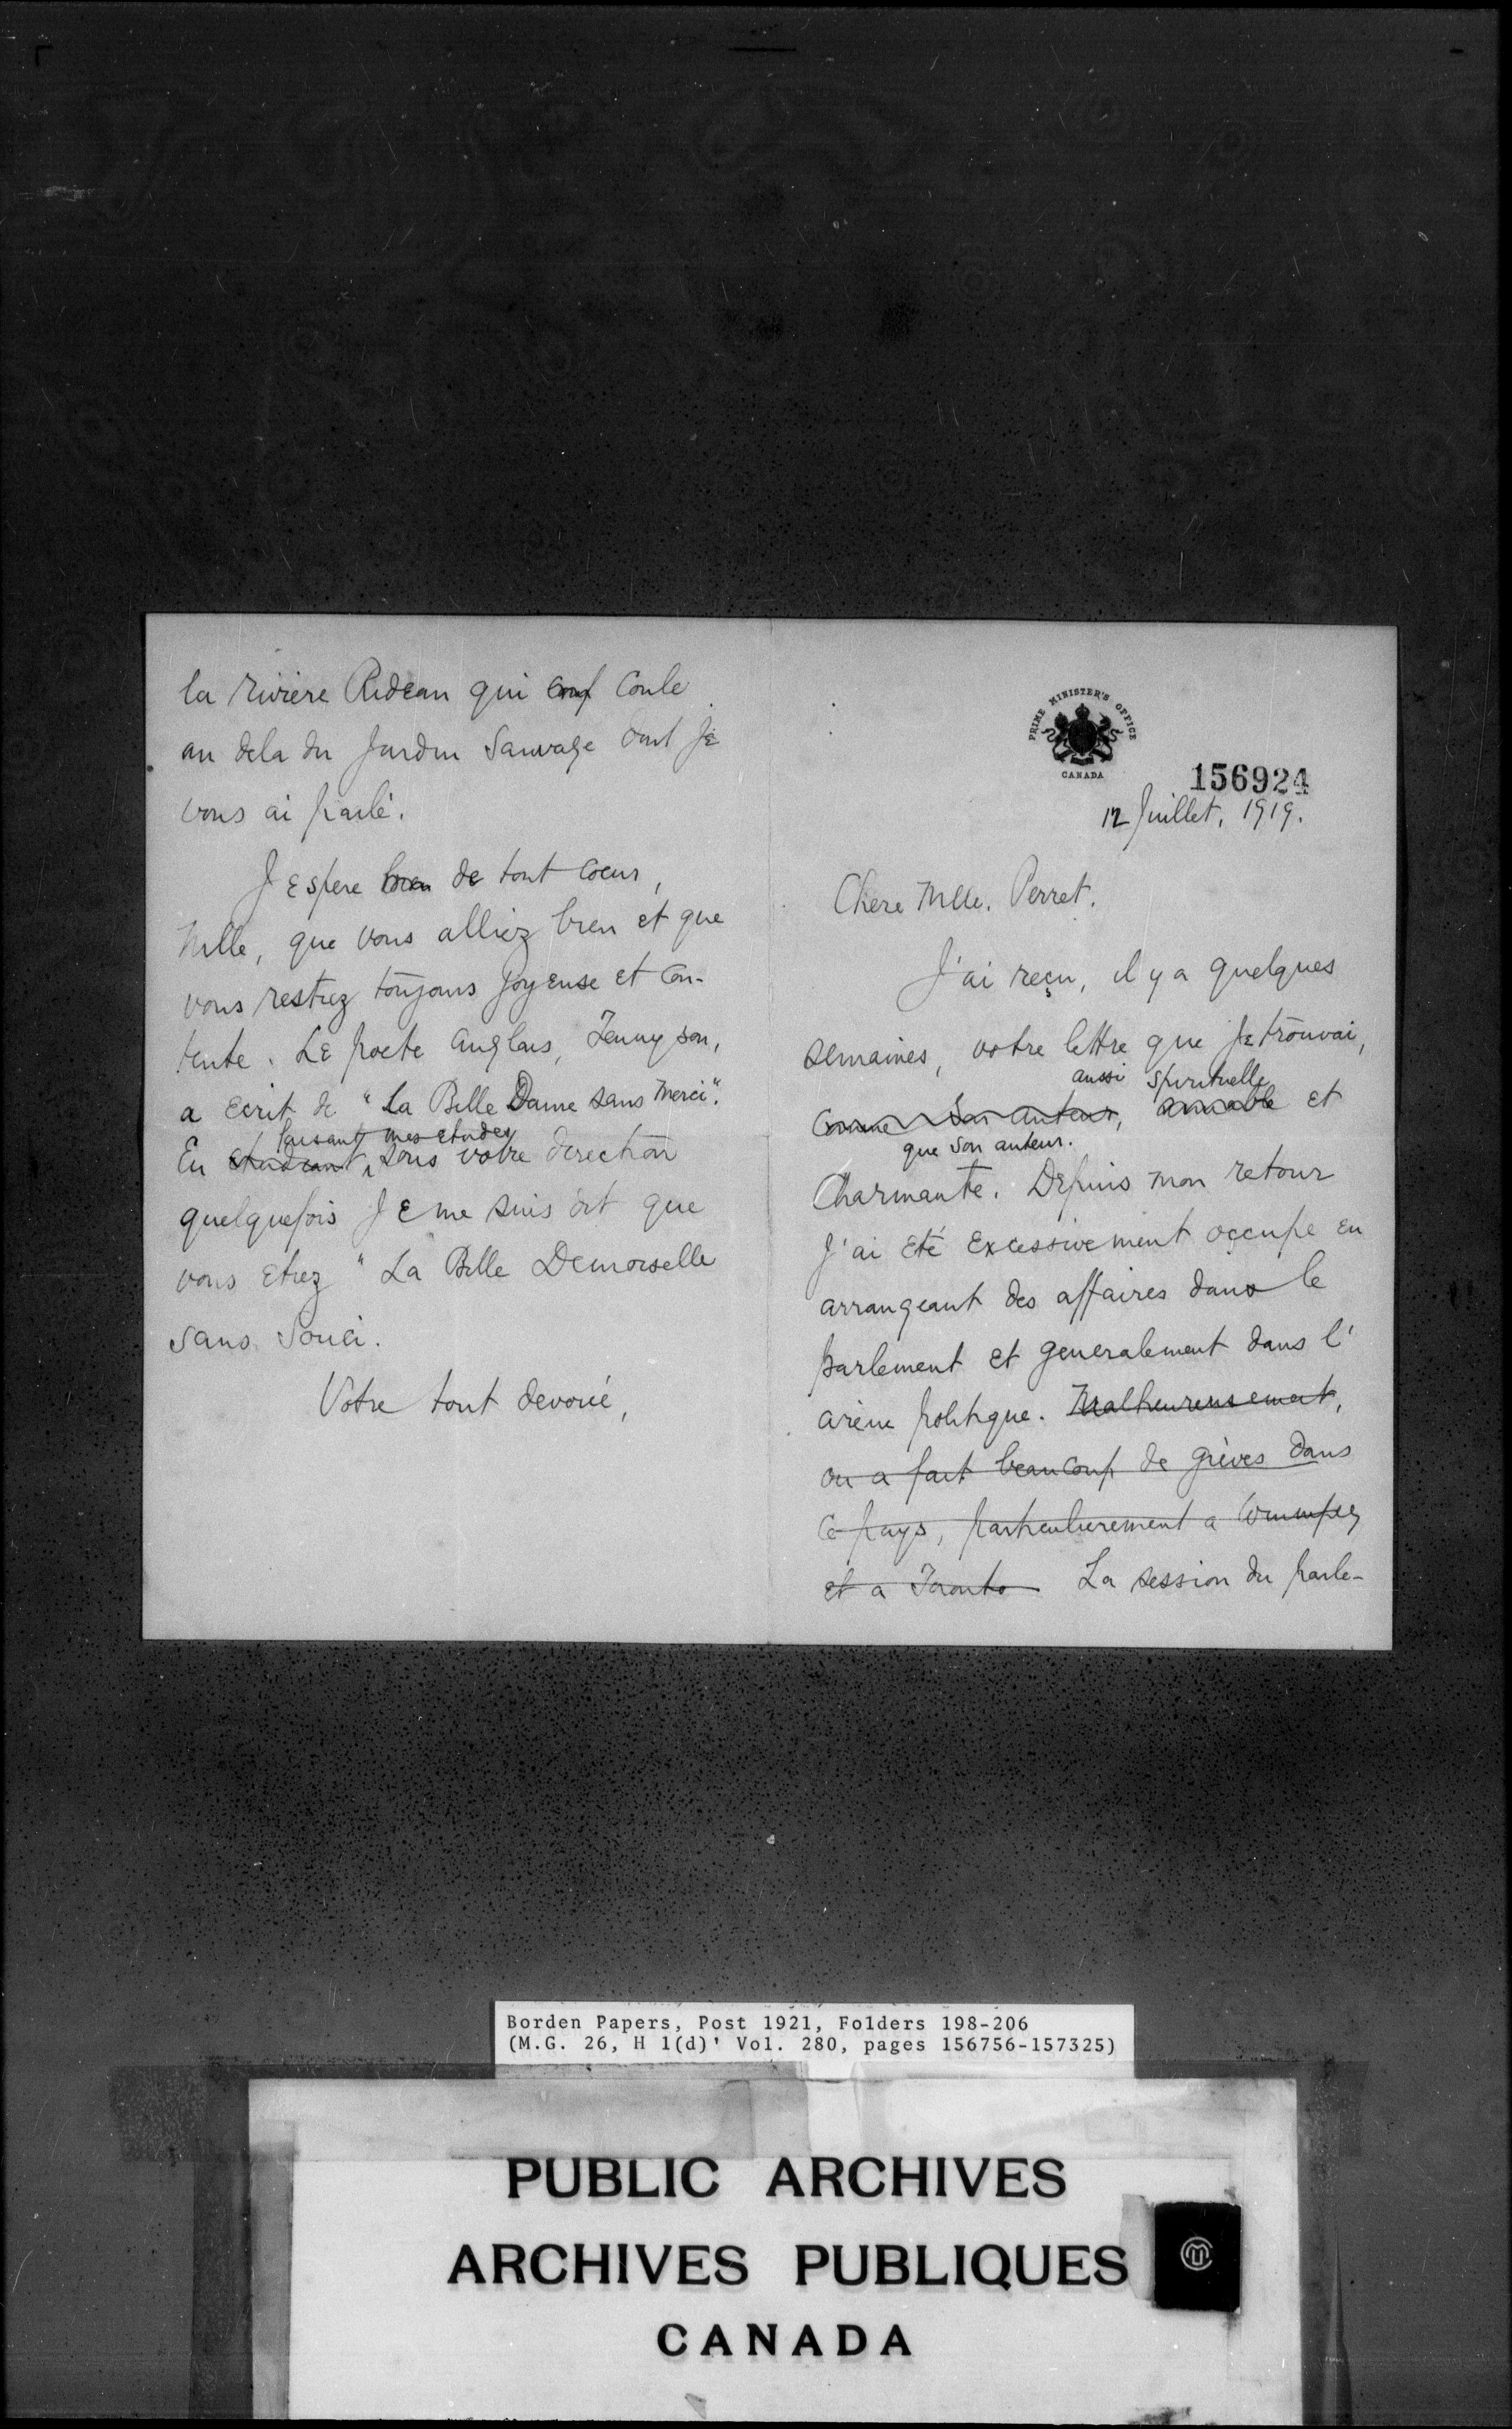 la riviere Rideau qui coul coule
au dela du Jardin Sauvage dont Je
vous ai parlé.
J'Espere bien de tout coeur,
Mlle, que vous alliez bien et que
vous restiez toujours Joyeuse et con-
tente. Le poete Anglais, Tennyson,
a Ecrit de "La Belle Dame sans Merci".
faisant mes etudes
En etudiant sous votre direction
quelquefois JE me suis dit que
vous etiez "La Belle Demoiselle
sans Souci.
Votre tout devoué,
PRIME MINISTER'S OFFICE
CANADA
156924
12 Juillet, 1919.
Chere Mlle. Perret.
J'ai reçu, il y a quelques
semaines, votre lettre que Je trouvai,
aussi spirituelle
comme son auteur, aimable et
que son auteur.
Charmante. Depuis mon retour
J'ai Eté Excessivement occupé En
arrangeant des affaires dans le
parlement et generalement dans l'
arène politique. Malheureusement,
on a fait beaucoup de grèves dans
ce pays, particulierement a Winnipeg
et a Toronto La session du parle-
Borden Papers, Post 1921, Folders 198-206
(M.G. 26, H 1(d)' Vol. 280, pages 156756-157325)
PUBLIC ARCHIVES
ARCHIVES PUBLIQUES
CANADA